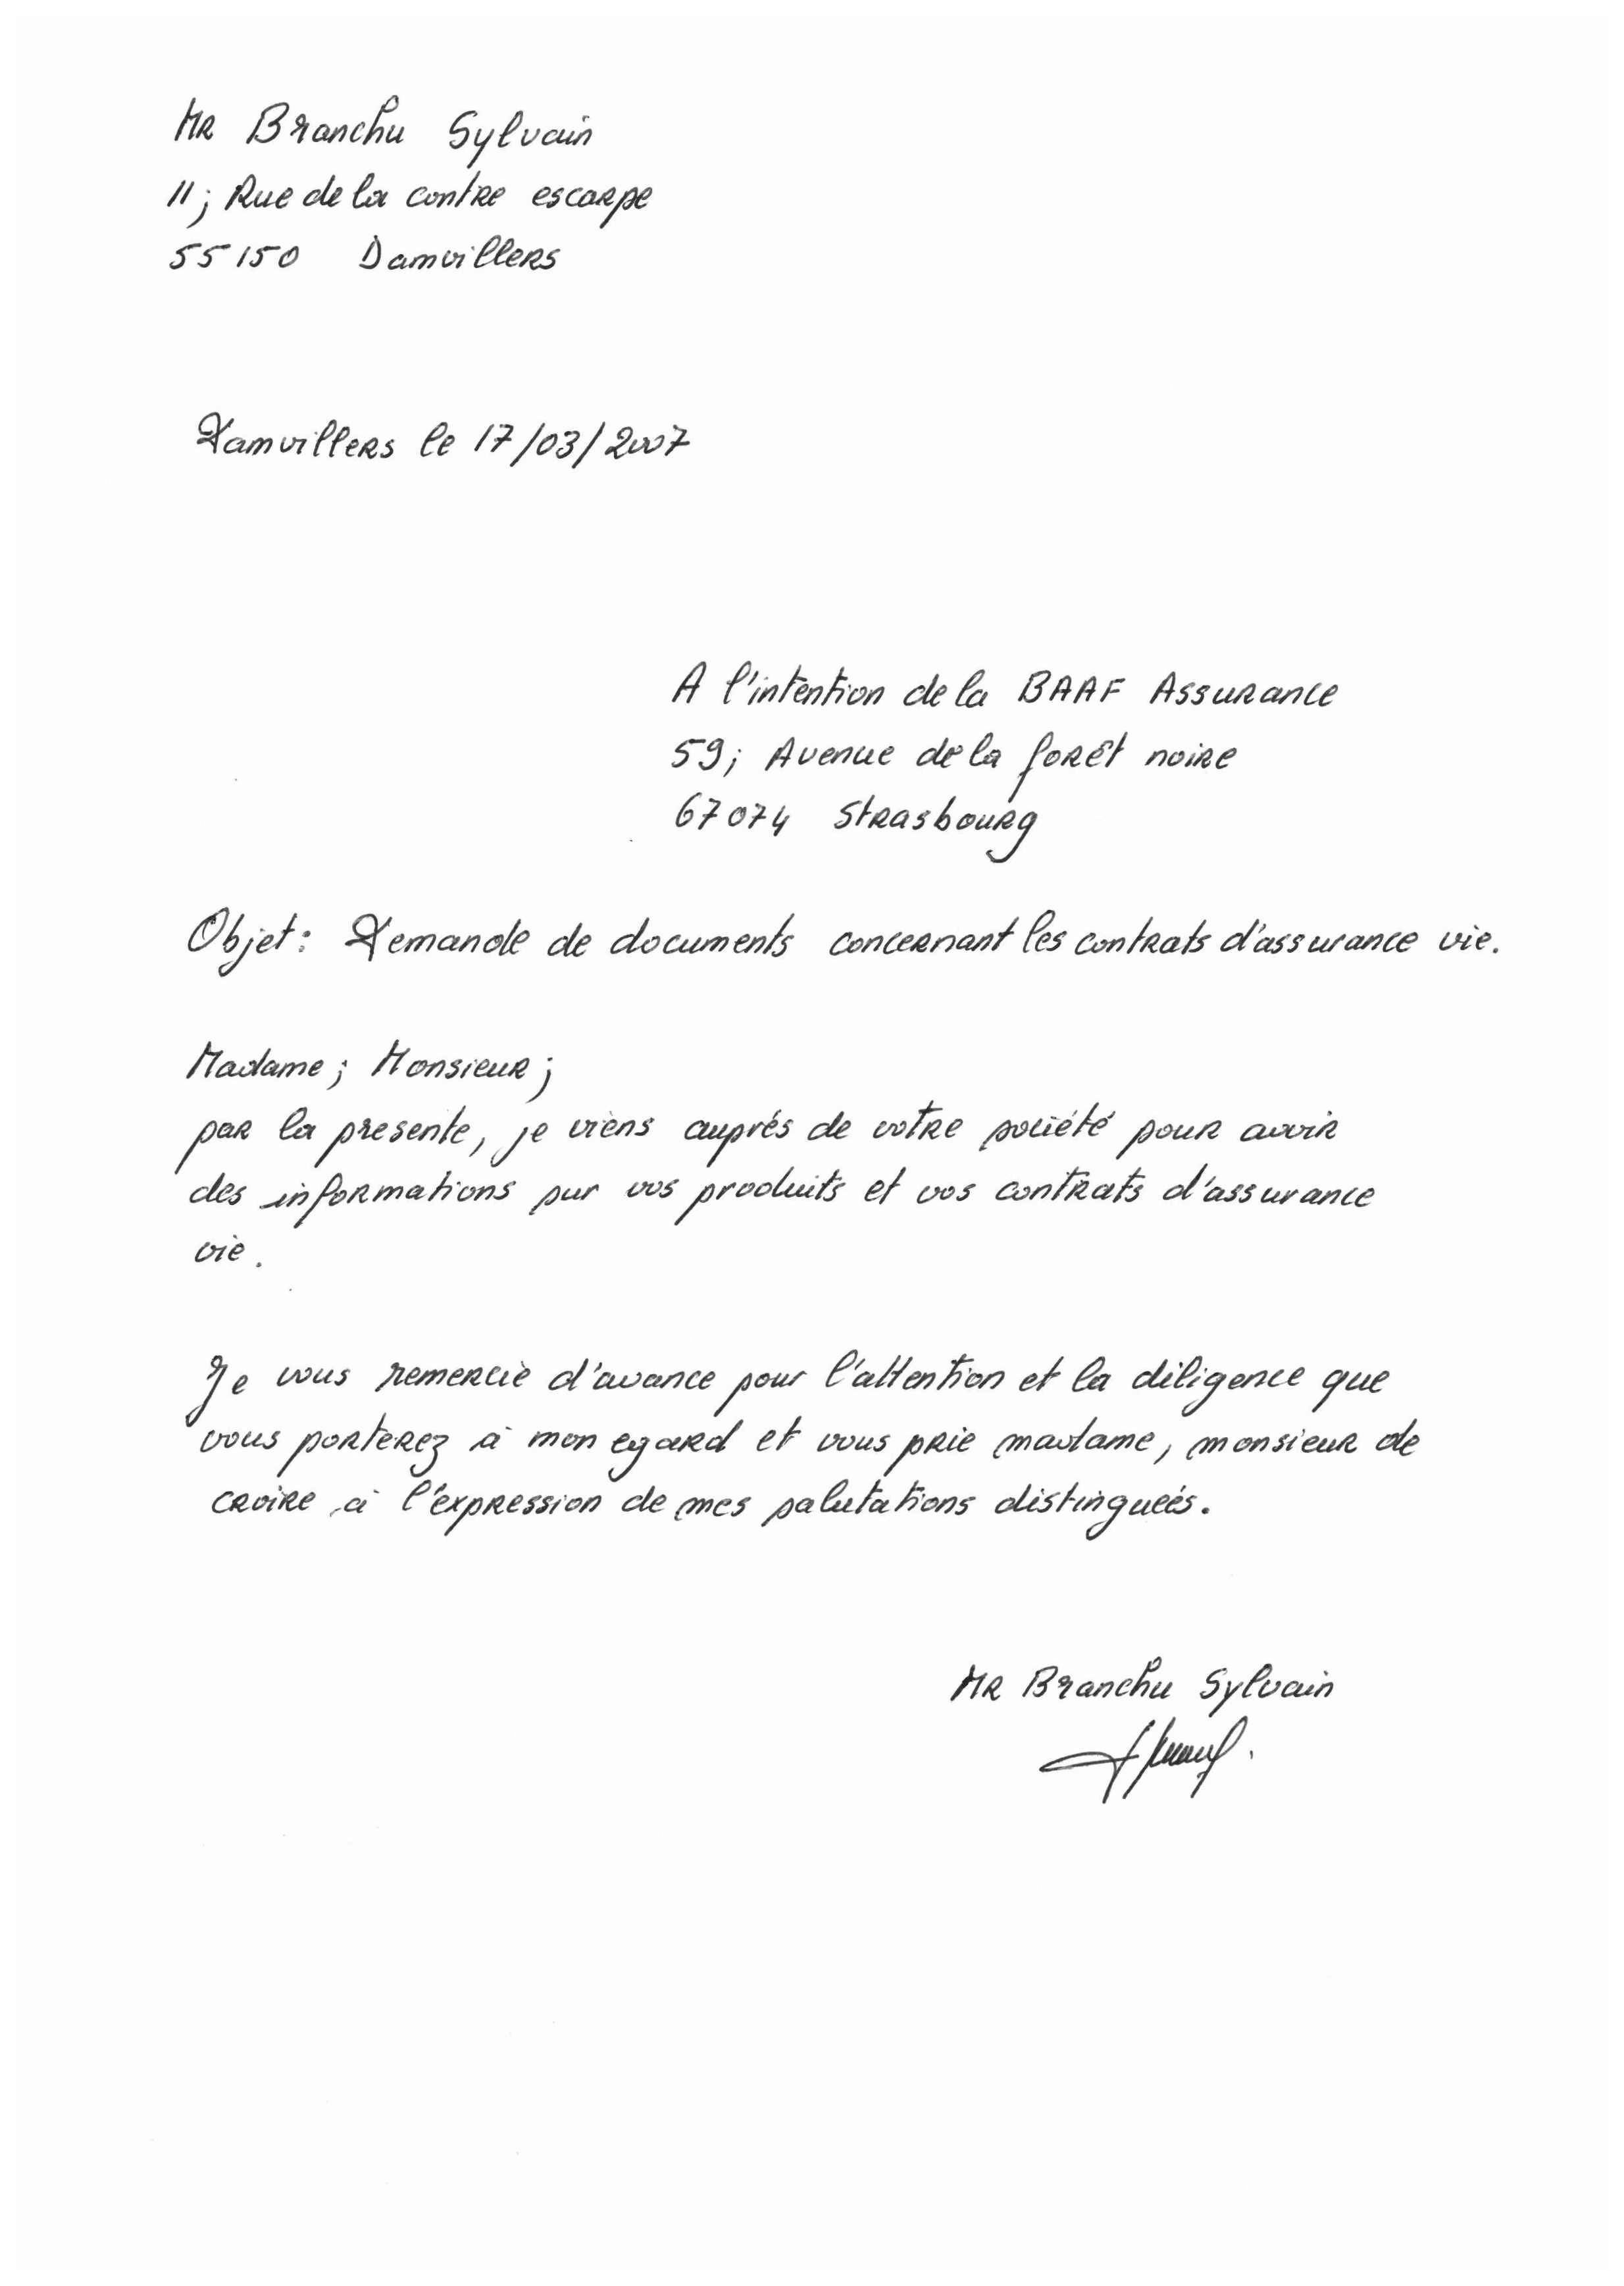 MR Branchu Sylvain
11; Rue de la contre escarpe
55150 Damvillers
Damvillers le 17/03/2007
A l'intention de la BAAF Assurance
59; Avenue de la forêt noire
67074 Strasbourg
Objet: Demande de documents concernant les contrats d'assurance vie.
Madame; Monsieur;
par la presente, je viens auprés de votre société pour avoir
des informations sur vos produits et vos contrats d'assurance
vie.
Je vous remercie d'avance pour l'attention et la diligence que
vous porterez à mon egard et vous prie madame, monsieur de
croire à l'expression de mes salutations distinguées.
MR Branchu Sylvain